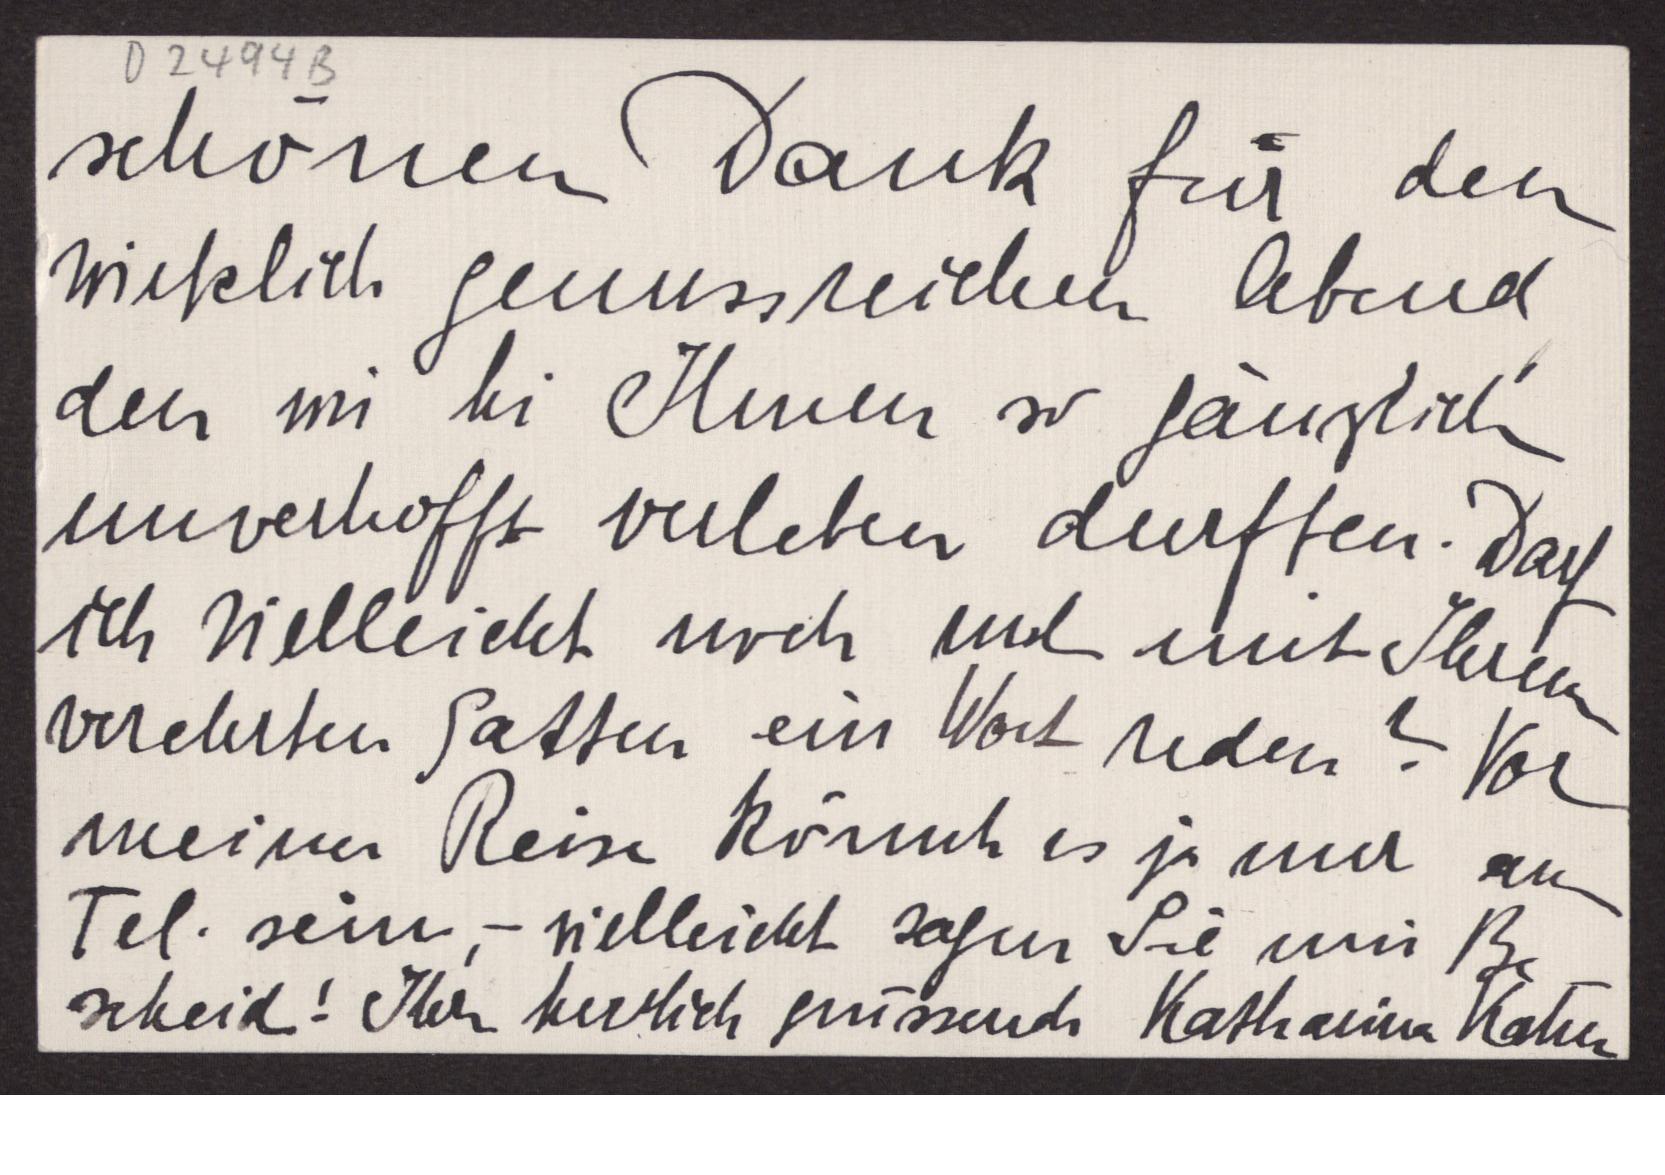 D 2494 B
schönen Dank für den
wirklich genussreichen Abend
den wir bei Ihnen so gänzlich
unverhofft verleben durften. Darf
ich vielleicht noch und mit Ihrem
verehrten Gatten ein Wort reden? Vor
meiner Reise könnte es ja nur am
Tel. sein, – vielleicht sagen Sie mir Be
scheid! Ihre herzlich grüssende Katharina